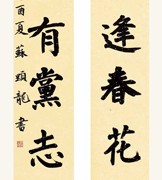 逢春花
有黨志
酉夏蘇頭龍書